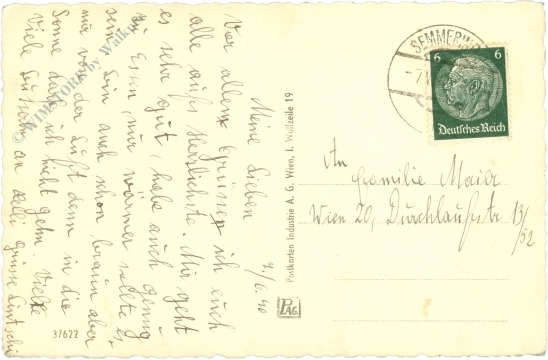 7/6. 40
Meine Lieben
Vor allem grüsse ich euch
alle aufs Herzlichste. Mir geht
es sehr gut, habe auch genug
zu Essen, nur wärmer sollte es
sein. Bin auch schon braun aber
nur von der Luft denn in die
Sonne darf ich nicht gehn. Viele
Viele Bussi an alle grüsse
37622
Postkarten Industrie A. G. Wien, I. Wollzeile 19
PAG
SEMMERING
6 6
Deutsches Reich
An
Familie Maier
Wien 20, Durchlaufstr. 13/
52
© WIMSTORY by Walker